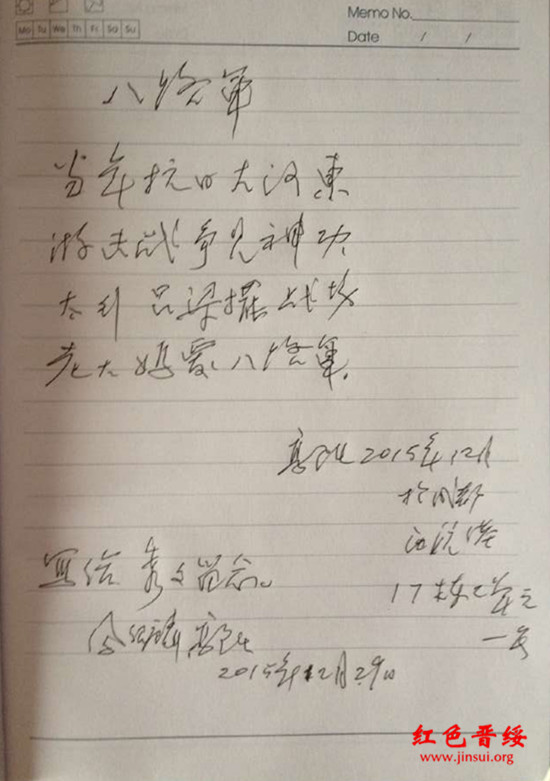 Memo No.
Mo Tu We Th Fr Sa Su
Date / /
八路军
当年抗日大河東
游击战争见神功
太行吕梁摆战场
老大妈爱八路军
2015年12月
於成都
17栋2单元
一号
写给秀文留念
2015年12月29日
红色晋绥
www.jinsui.org